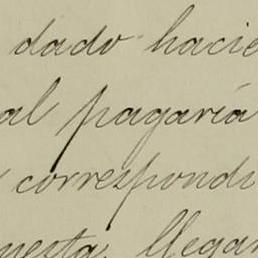 dado hacie
al pagaría
correspondi
uesta, llegar